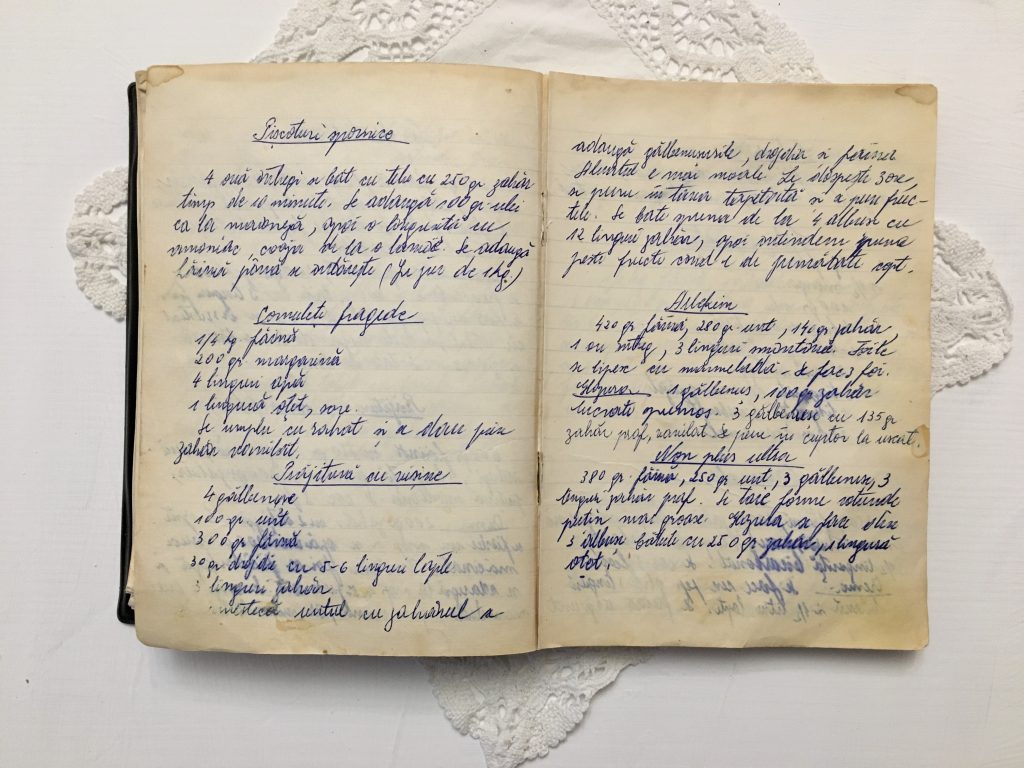 Pișcoturi spornice
4 ouă întregi se bat cu telu cu 250 gr zahăr
timp de 10 minute. Se adaugă 100 gr ulei
ca la maioneză, apoi o linguriță cu
amoniac, coaja de la o lămâe. Se adaugă
făină până se întărește (în jur de 1 kg.)
Cornulețe fragede
1/4 kg. făină
200 gr margarină
4 linguri apă
1 lingură oțet, sare.
Se umplu cu rahat și se dau prin
zahăr vanilat.
Prăjitură cu vișine
4 gălbenușe
100 gr unt
300 gr făină
30 gr drojdie cu 5-6 linguri lapte
3 linguri zahăr
mestecă untul cu zahărul se
adaugă gălbenușurile, drojdia și făina
Aluatul e mai moale. Se dospește 30',
se pune în tava tapetată și se pun fruc-
tele. Se bate spuma de la 4 albuși cu
12 linguri zahăr, apoi întindem spuma
peste fructe când e de jumătate copt.
Alechim
420 gr făină, 280 gr. unt, 140 gr zahăr,
1 ou întreg, 3 linguri smântână. Foile
se lipesc cu marmeladă - se fac 3 foi.
Glazura 1 gălbenuș, 100 gr zahăr
lucrate spumos. 3 gălbenușe cu 135 gr
zahăr praf, vanilat se pune în cuptor la uscat.
Non plus ultra
380 gr. făină, 250 gr unt, 3 gălbenușe, 3
linguri zahăr praf. Se taie forme rotunde
puțin mai groase. Glazura se face din
3 albușe bătute cu 250 gr zahăr, 1 lingură
oțet.